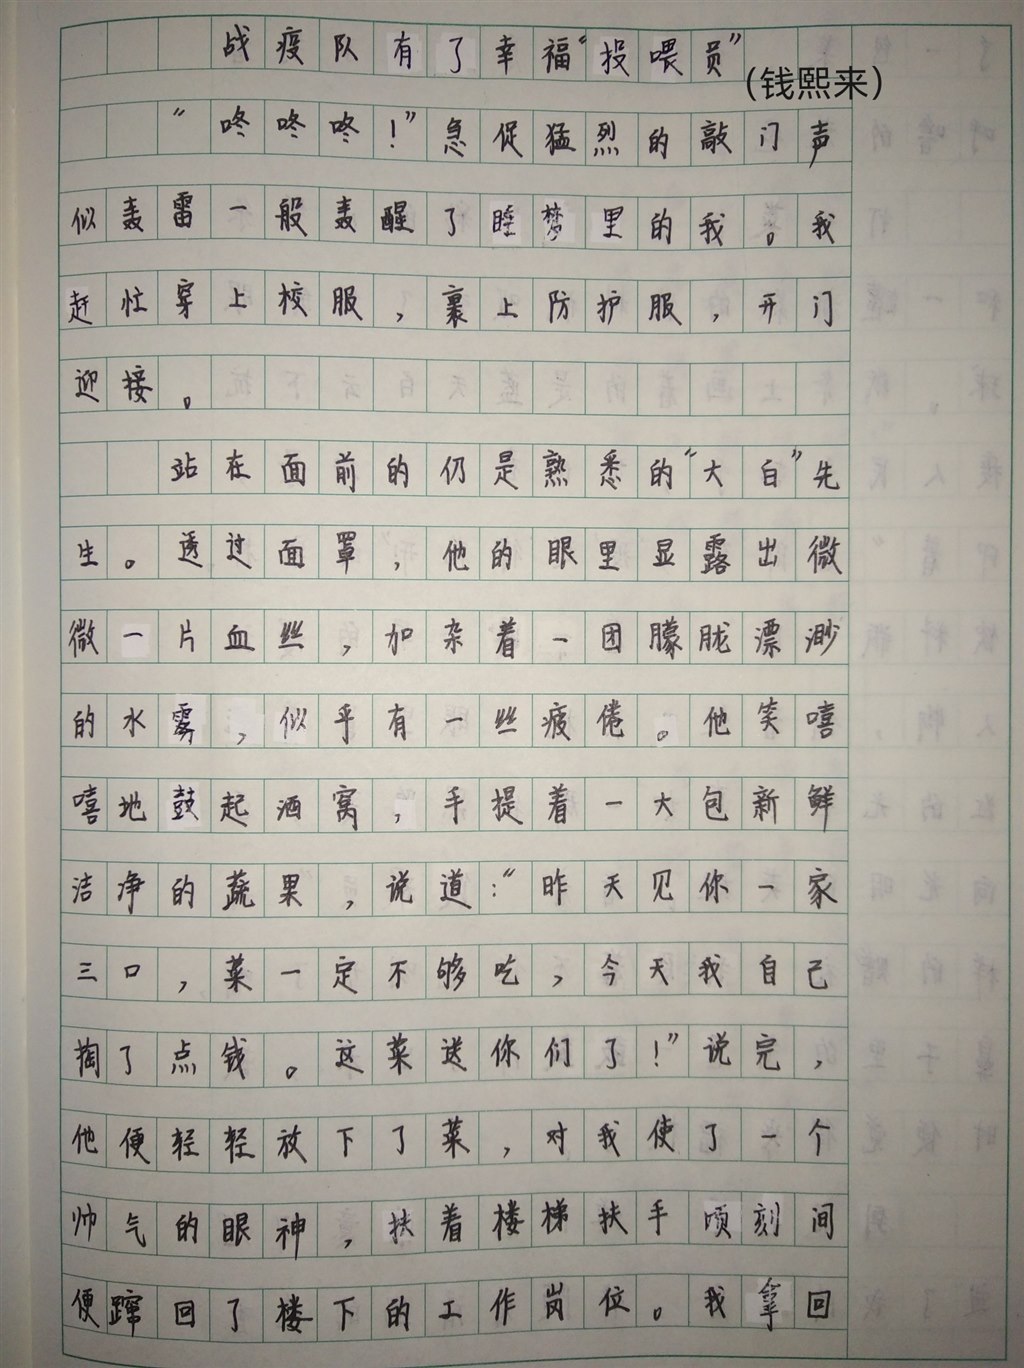 战疫队有了幸福“投喂员”
（钱熙来）
“咚咚咚！”急促猛烈的敲门声
似轰雷一般轰醒了睡梦里的我。我
赶忙穿上校服，裹上防护服，开门
迎接。
站在面前的仍是熟悉的“大白”先
生。透过面罩，他的眼里显露出微
微一片血丝，加杂着一团朦胧漂渺
的水雾，似乎有一丝疲倦。他笑嘻
嘻地鼓起酒窝，手提着一大包新鲜
洁净的蔬果，说道：“昨天见你一家
三口，菜一定不够吃，今天我自己
掏了点钱。这菜送你们了！”说完，
他便轻轻放下了菜，对我使了一个
帅气的眼神，扶着楼梯扶手顷刻间
便蹿回了楼下的工作岗位。我拿回